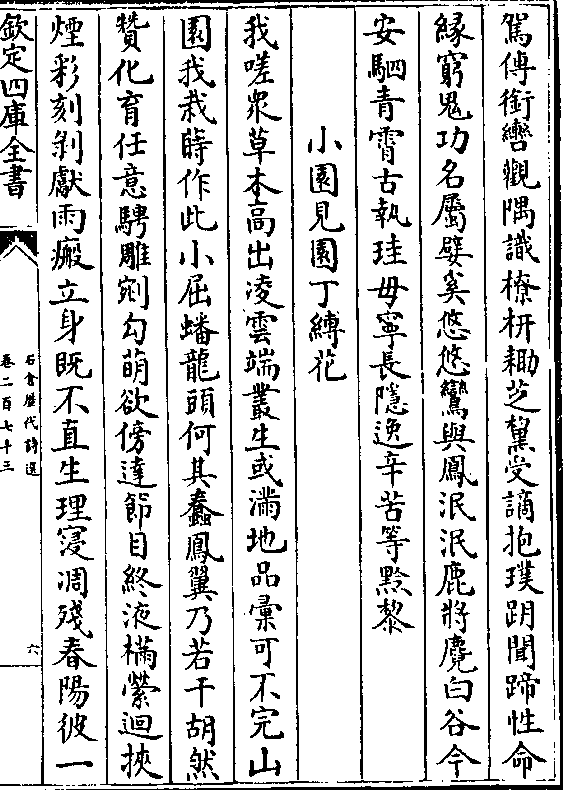 駕傅銜轡觀隅識橑枅耡芝黨受謫抱璞跀聞蹄性命
緣窮鬼功名屬嬖奚悠悠鸞與鳳泯泯鹿將麑白谷今
安駟青霄古執珪毋寧長隱逸辛苦等黔黎
小園見園丁縛花
我嗟衆草木高出凌雲端叢生或滿地品彚可不完山
園我栽蒔作此小屈蟠龍頭何其蠢鳳翼乃若干胡然
贊化育任意騁雕剜勾萌欲傍達節目終液樠縈迴挾
煙彩刻剝獻雨瘢立身既不直生理寖凋殘春陽彼一
欽定四庫全書
石倉歷代詩選
卷二百七十三
六